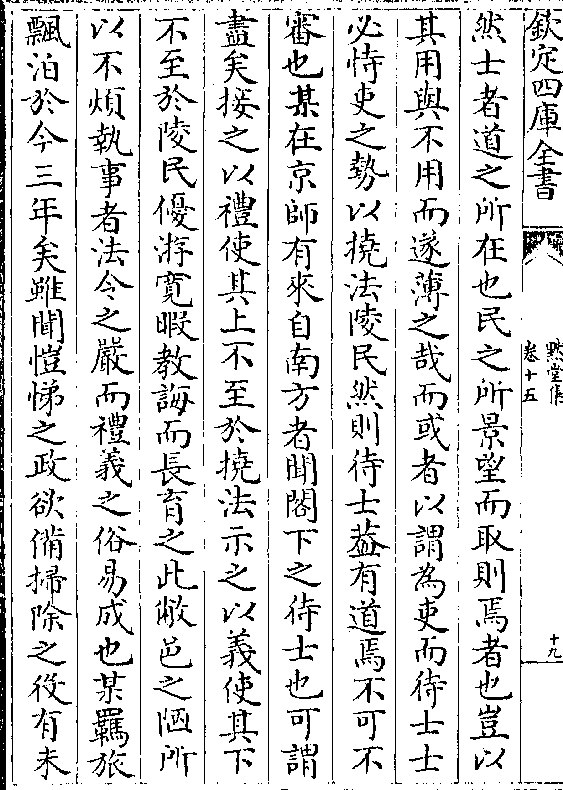 欽定四庫全書
默堂集
卷十五
十九
然士者道之所在也民之所景望而取則焉者也豈以
其用與不用而遂薄之哉而或者以謂為吏而待士士
必恃吏之勢以撓法陵民然則待士葢有道焉不可不
審也某在京師有來自南方者聞閣下之待士也可謂
盡矣接之以禮使其上不至於撓法示之以義使其下
不至於陵民優游寛暇教誨而長育之此敝邑之陋所
以不煩執事者法令之嚴而禮義之俗易成也某羈旅
飄泊於今三年矣雖聞愷悌之政欲備掃除之役有未